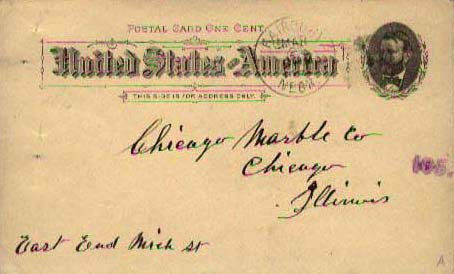 POSTAL CARD ONE CENT.
United States of America
THIS SIDE IS FOR ADDRESS ONLY.
MAR
NEBR
Chicago Marble Co
Chicago
Illinois
105.
East End Mich st
A